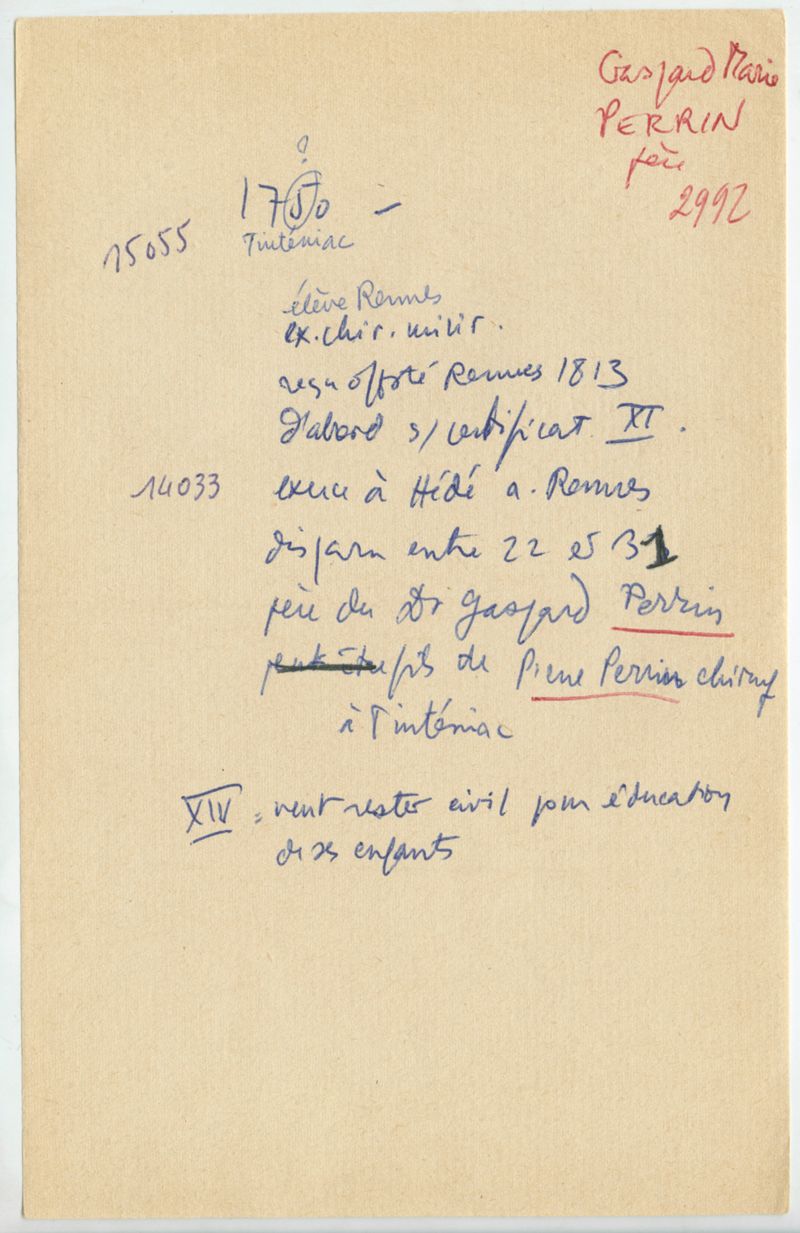 Gaspard Marie
PERRIN
père
2992
?
1750 –
15055
Tinténiac
élève Rennes
ex. chir. milit.
reçu off. Rennes 1813
d'abord s/ certificat XI.
14033 exerce à Hédé a. Rennes
disparu entre 22 et 31
père du Dr Gaspard Perrin
peut être fils de Pierre Perrin chirurg
à Tinténiac
XIV = veut rester civil pour éducation
de ses enfants